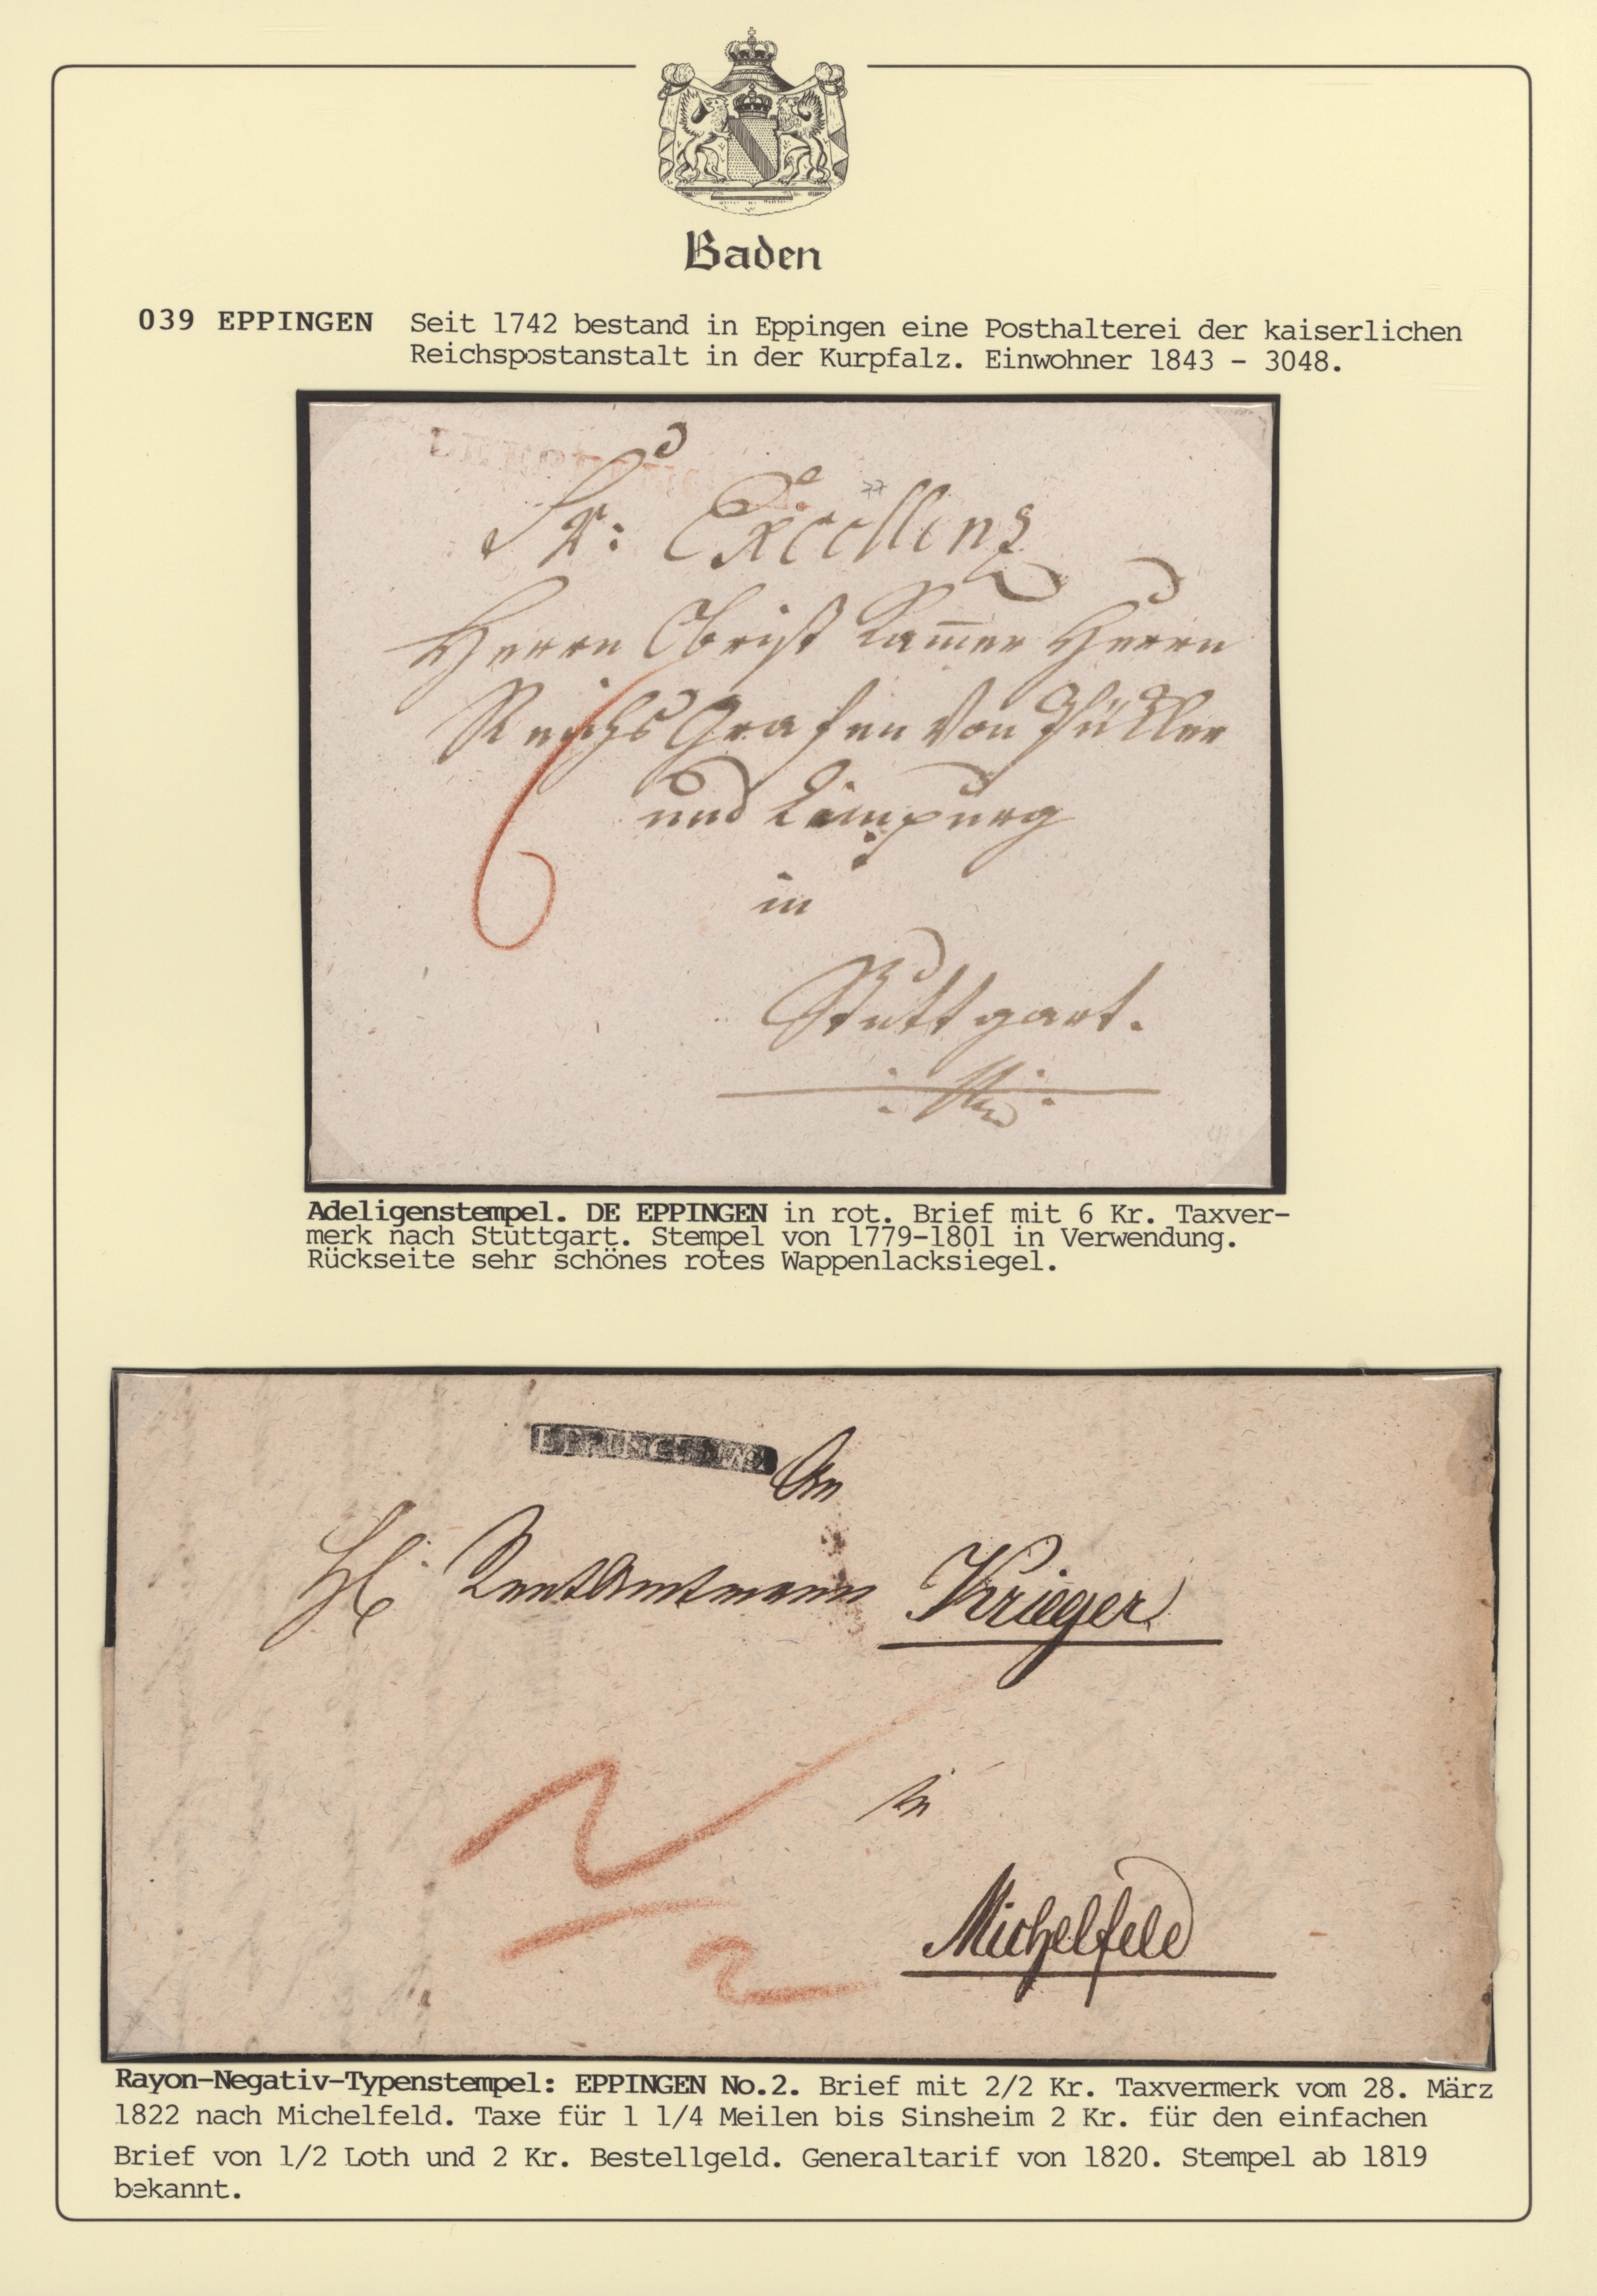 Baden
039 EPPINGEN Seit 1742 bestand in Eppingen eine Posthalterei der kaiserlichen
Reichspostanstalt in der Kurpfalz. Einwohner 1843 - 3048.
Sr: Excellenz
Herrn Obrist Kam̅er Herrn
Reichs Grafen von Pükler
und Limpurg
in
Stuttgart.
6
Adeligenstempel. DE EPPINGEN in rot. Brief mit 6 Kr. Taxver-
merk nach Stuttgart. Stempel von 1779-1801 in Verwendung.
Rückseite sehr schönes rotes Wappenlacksiegel.
EPPINGEN No 2
An
H. Rentamtmann Krieger
in
Michelfeld
2
2
Rayon-Negativ-Typenstempel: EPPINGEN No.2. Brief mit 2/2 Kr. Taxvermerk vom 28. März
1822 nach Michelfeld. Taxe für 1 1/4 Meilen bis Sinsheim 2 Kr. für den einfachen
Brief von 1/2 Loth und 2 Kr. Bestellgeld. Generaltarif von 1820. Stempel ab 1819
bekannt.